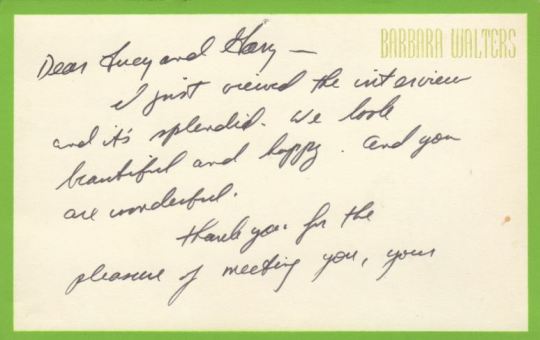 BARBARA WALTERS
Dear Lucy and Gary —
I just viewed the interview
and it's splendid. We look
beautiful and happy. And you
are wonderful.
Thank you for the
pleasure of meeting you, your